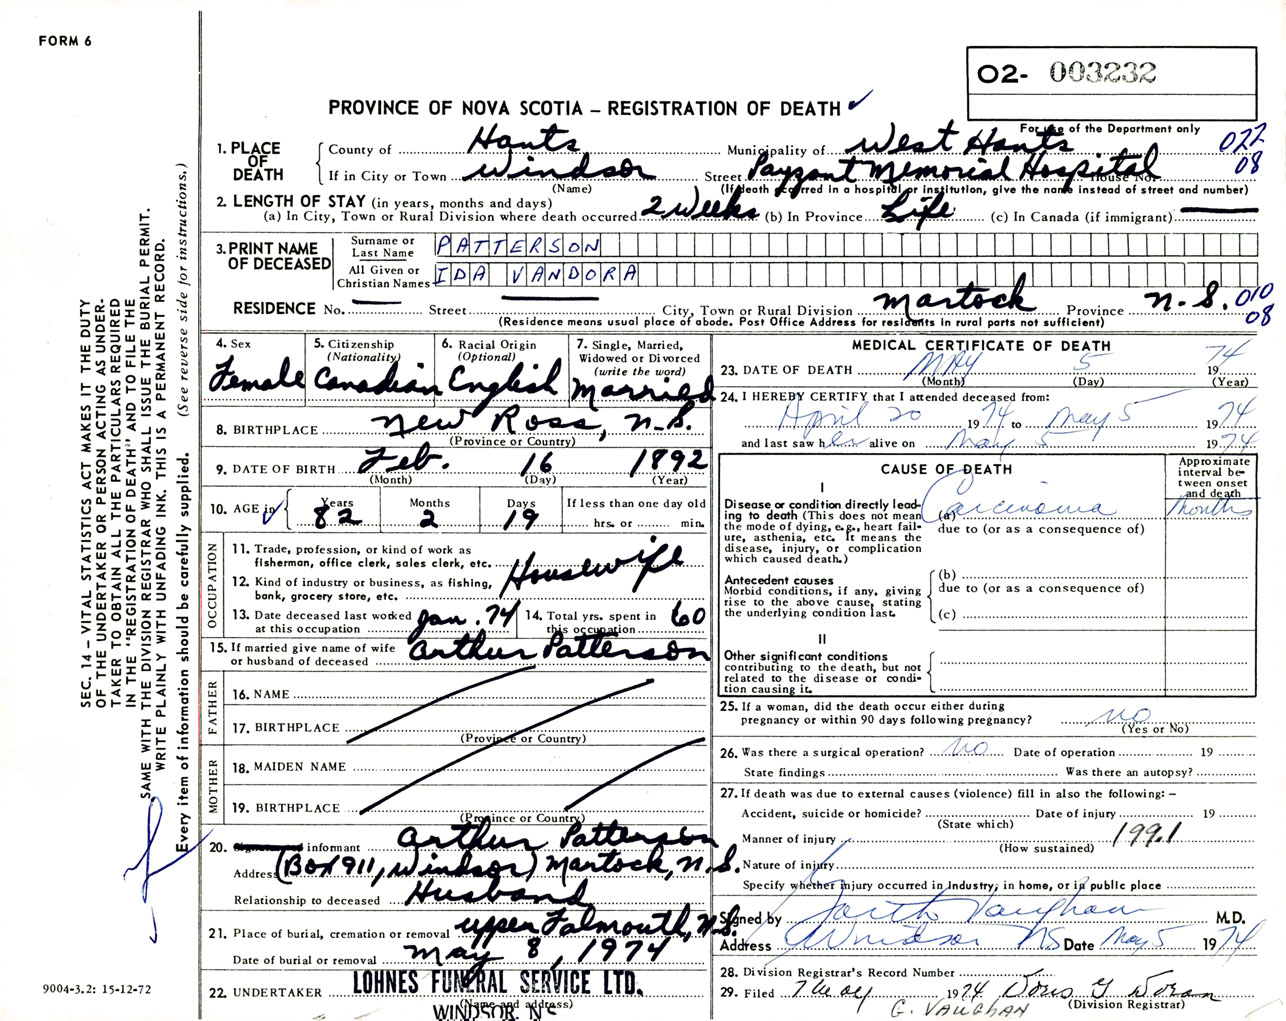 FORM 6
O2- 003232
PROVINCE OF NOVA SCOTIA – REGISTRATION OF DEATH ✓
For use of the Department only
1. PLACE OF DEATH
County of Hants Municipality of West Hants 022
If in City or Town Windsor Street Payzant Memorial Hospital House No. 08
(Name) (If death occurred in a hospital or institution, give the name instead of street and number)
2. LENGTH OF STAY (in years, months and days)
(a) In City, Town or Rural Division where death occurred 2 Weeks (b) In Province Life (c) In Canada (if immigrant) —
3. PRINT NAME OF DECEASED
Surname or Last Name PATTERSON
All Given or Christian Names IDA VANDORA
RESIDENCE No. — Street — City, Town or Rural Division Martock Province N.S. 010
(Residence means usual place of abode. Post Office Address for residents in rural parts not sufficient) 08
4. Sex
Female
5. Citizenship
(Nationality)
Canadian
6. Racial Origin
(Optional)
English
7. Single, Married,
Widowed or Divorced
(write the word)
Married
8. BIRTHPLACE New Ross, N.S.
(Province or Country)
9. DATE OF BIRTH Feb. 16 1892
(Month) (Day) (Year)
10. AGE in ✓
Years Months Days If less than one day old
82 2 19 hrs. or min.
OCCUPATION
11. Trade, profession, or kind of work as
fisherman, office clerk, sales clerk, etc. Housewife
12. Kind of industry or business, as fishing,
bank, grocery store, etc.
13. Date deceased last worked Jan. 74
at this occupation
14. Total yrs. spent in 60
this occupation
15. If married give name of wife
or husband of deceased Arthur Patterson
FATHER
16. NAME
17. BIRTHPLACE
(Province or Country)
MOTHER
18. MAIDEN NAME
19. BIRTHPLACE
(Province or Country)
20. informant Arthur Patterson
Address (Box 911, Windsor) Martock, N.S.
Relationship to deceased Husband
21. Place of burial, cremation or removal Upper Falmouth, N.S.
Date of burial or removal May 8, 1974
22. UNDERTAKER LOHNES FUNERAL SERVICE LTD.
(Name and address)
WINDSOR, N S
MEDICAL CERTIFICATE OF DEATH
23. DATE OF DEATH MAY 5 1974
(Month) (Day) (Year)
24. I HEREBY CERTIFY that I attended deceased from:
April 20 1974 to May 5 1974
and last saw her alive on May 5 1974
CAUSE OF DEATH
Approximate
interval be-
tween onset
and death
I
Disease or condition directly lead-
ing to death (This does not mean
the mode of dying, e.g., heart fail-
ure, asthenia, etc. It means the
disease, injury, or complication
which caused death.)
(a) Carcinoma Months
due to (or as a consequence of)
Antecedent causes
Morbid conditions, if any, giving
rise to the above cause, stating
the underlying condition last.
(b)
due to (or as a consequence of)
(c)
II
Other significant conditions
contributing to the death, but not
related to the disease or condi-
tion causing it.
25. If a woman, did the death occur either during
pregnancy or within 90 days following pregnancy? no
(Yes or No)
26. Was there a surgical operation? no Date of operation 19
State findings Was there an autopsy?
27. If death was due to external causes (violence) fill in also the following: –
Accident, suicide or homicide? Date of injury 19
(State which)
Manner of injury 199.1
(How sustained)
Nature of injury
Specify whether injury occurred in Industry, in home, or in public place
Signed by Garth Vaughan M.D.
Address Windsor NS Date May 5 1974
28. Division Registrar's Record Number
29. Filed 7 May 1974 Doris G Doran
(Division Registrar)
G. VAUGHAN
SEC. 14 – VITAL STATISTICS ACT MAKES IT THE DUTY
OF THE UNDERTAKER OR PERSON ACTING AS UNDER-
TAKER TO OBTAIN ALL THE PARTICULARS REQUIRED
IN THE "REGISTRATION OF DEATH" AND TO FILE THE
SAME WITH THE DIVISION REGISTRAR WHO SHALL ISSUE THE BURIAL PERMIT.
WRITE PLAINLY WITH UNFADING INK. THIS IS A PERMANENT RECORD.
Every item of information should be carefully supplied. (See reverse side for instructions.)
9004-3.2: 15-12-72